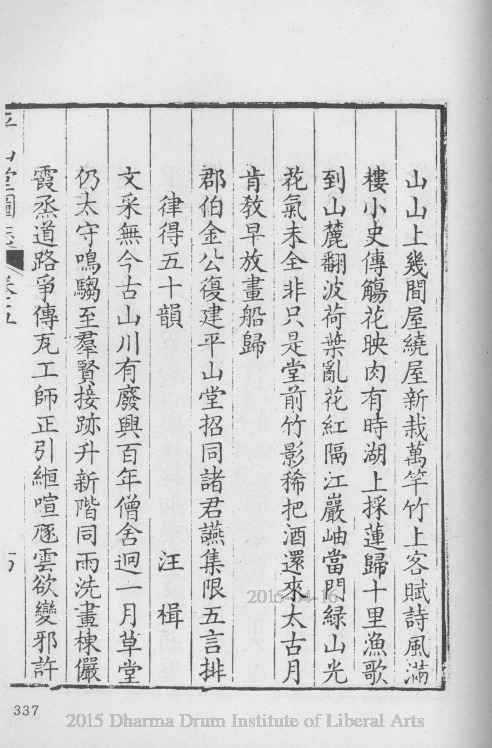 山山上幾間屋繞屋新栽萬竿竹上客賦詩風滿
樓小史傳觴花映肉有時湖上採蓮歸十里漁歌
到山麓翻波荷葉亂花紅隔江巖岫當門綠山光
花氣未全非只是堂前竹影稀把酒還來太古月
肯教早放畫船歸
郡伯金公復建平山堂招同諸君讌集限五言排
律得五十韻 汪楫
文采無今古山川有廢興百年僧舍迥一月草堂
仍太守鳴騶至羣賢接跡升新階同雨洗畫棟儼
霞烝道路爭傳瓦工師正引緪喧豗雲欲變邪許
平山堂圖志 卷十五
337
2015-04-16
2015 Dharma Drum Institute of Liberal Arts